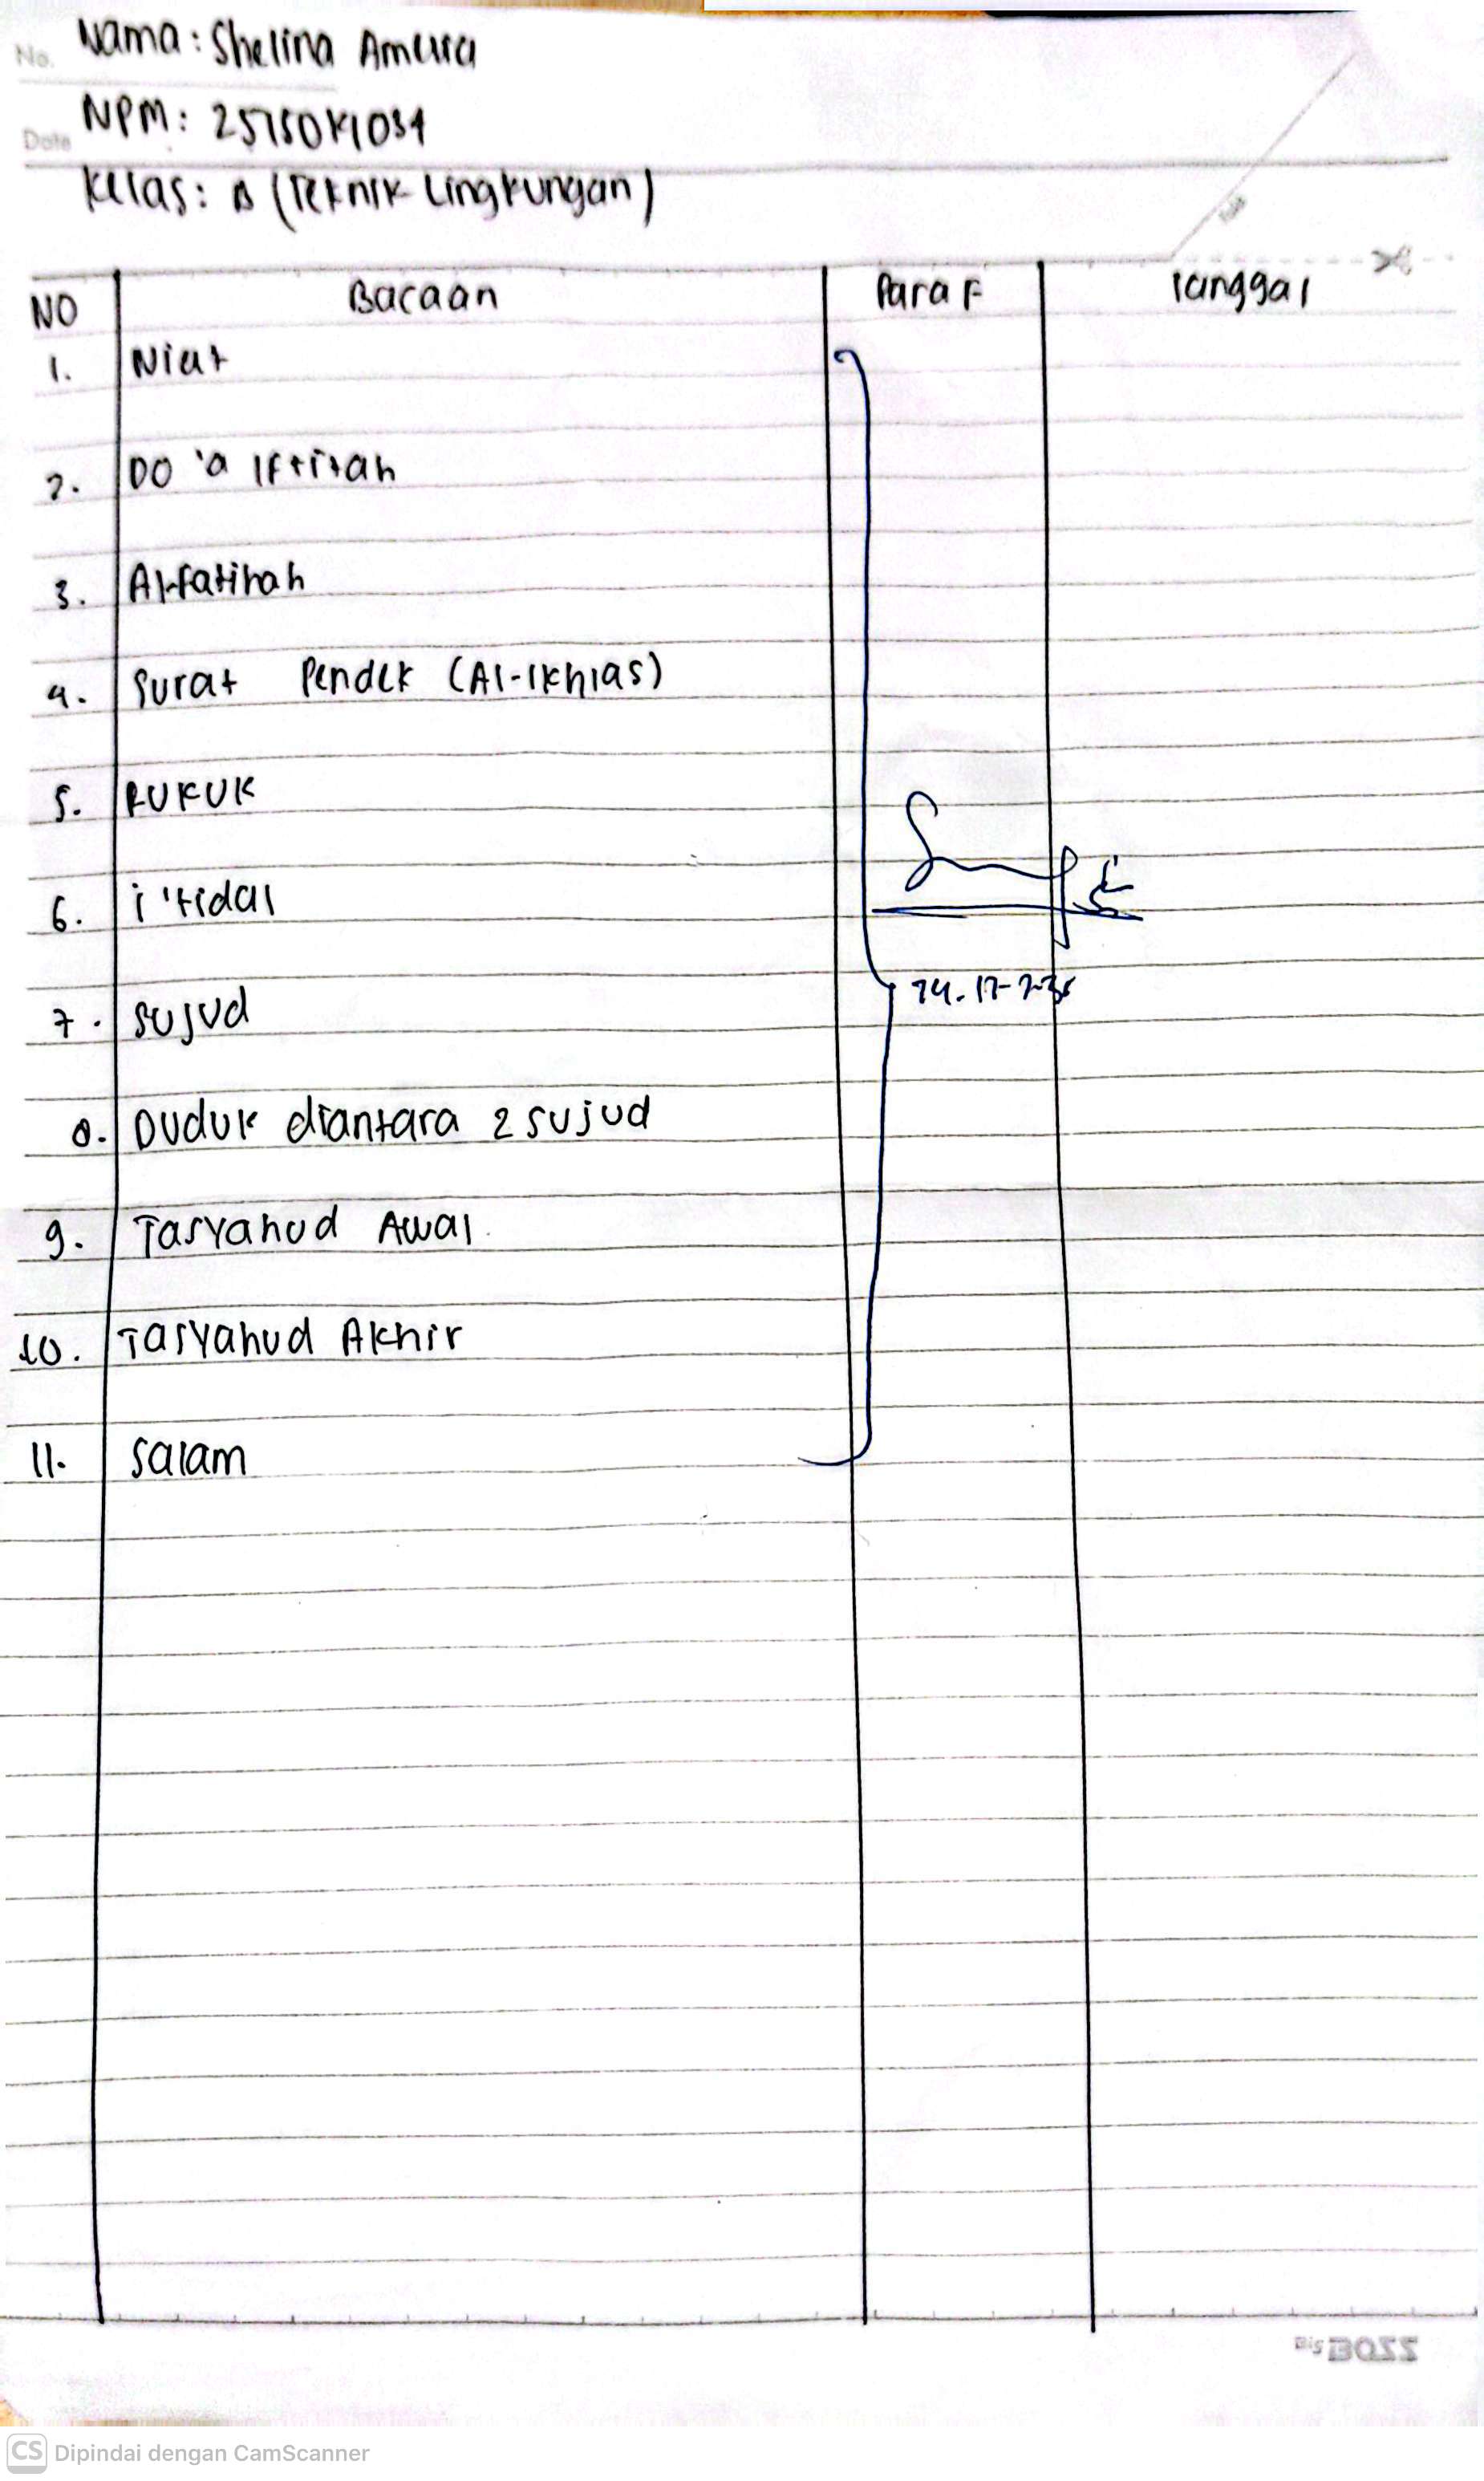 No.
Nama : Shelina Ameira
Date
NPM :
Kelas : B (Teknik Lingkungan)
NO Bacaan Paraf Tanggal
1. Niat
2. DO'a Iftitah
3. Al-fatihah
4. Surat Pendek (Al-Ikhlas)
5. RUKUK
6. i'tidal
7. Sujud
8. Duduk diantara 2 Sujud
9. Tasyahud Awal
10. Tasyahud Akhir
11. Salam
CS Dipindai dengan CamScanner